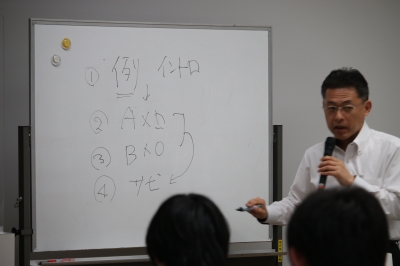 ① 例 イントロ
② A×D
③ B×O
④ サビ